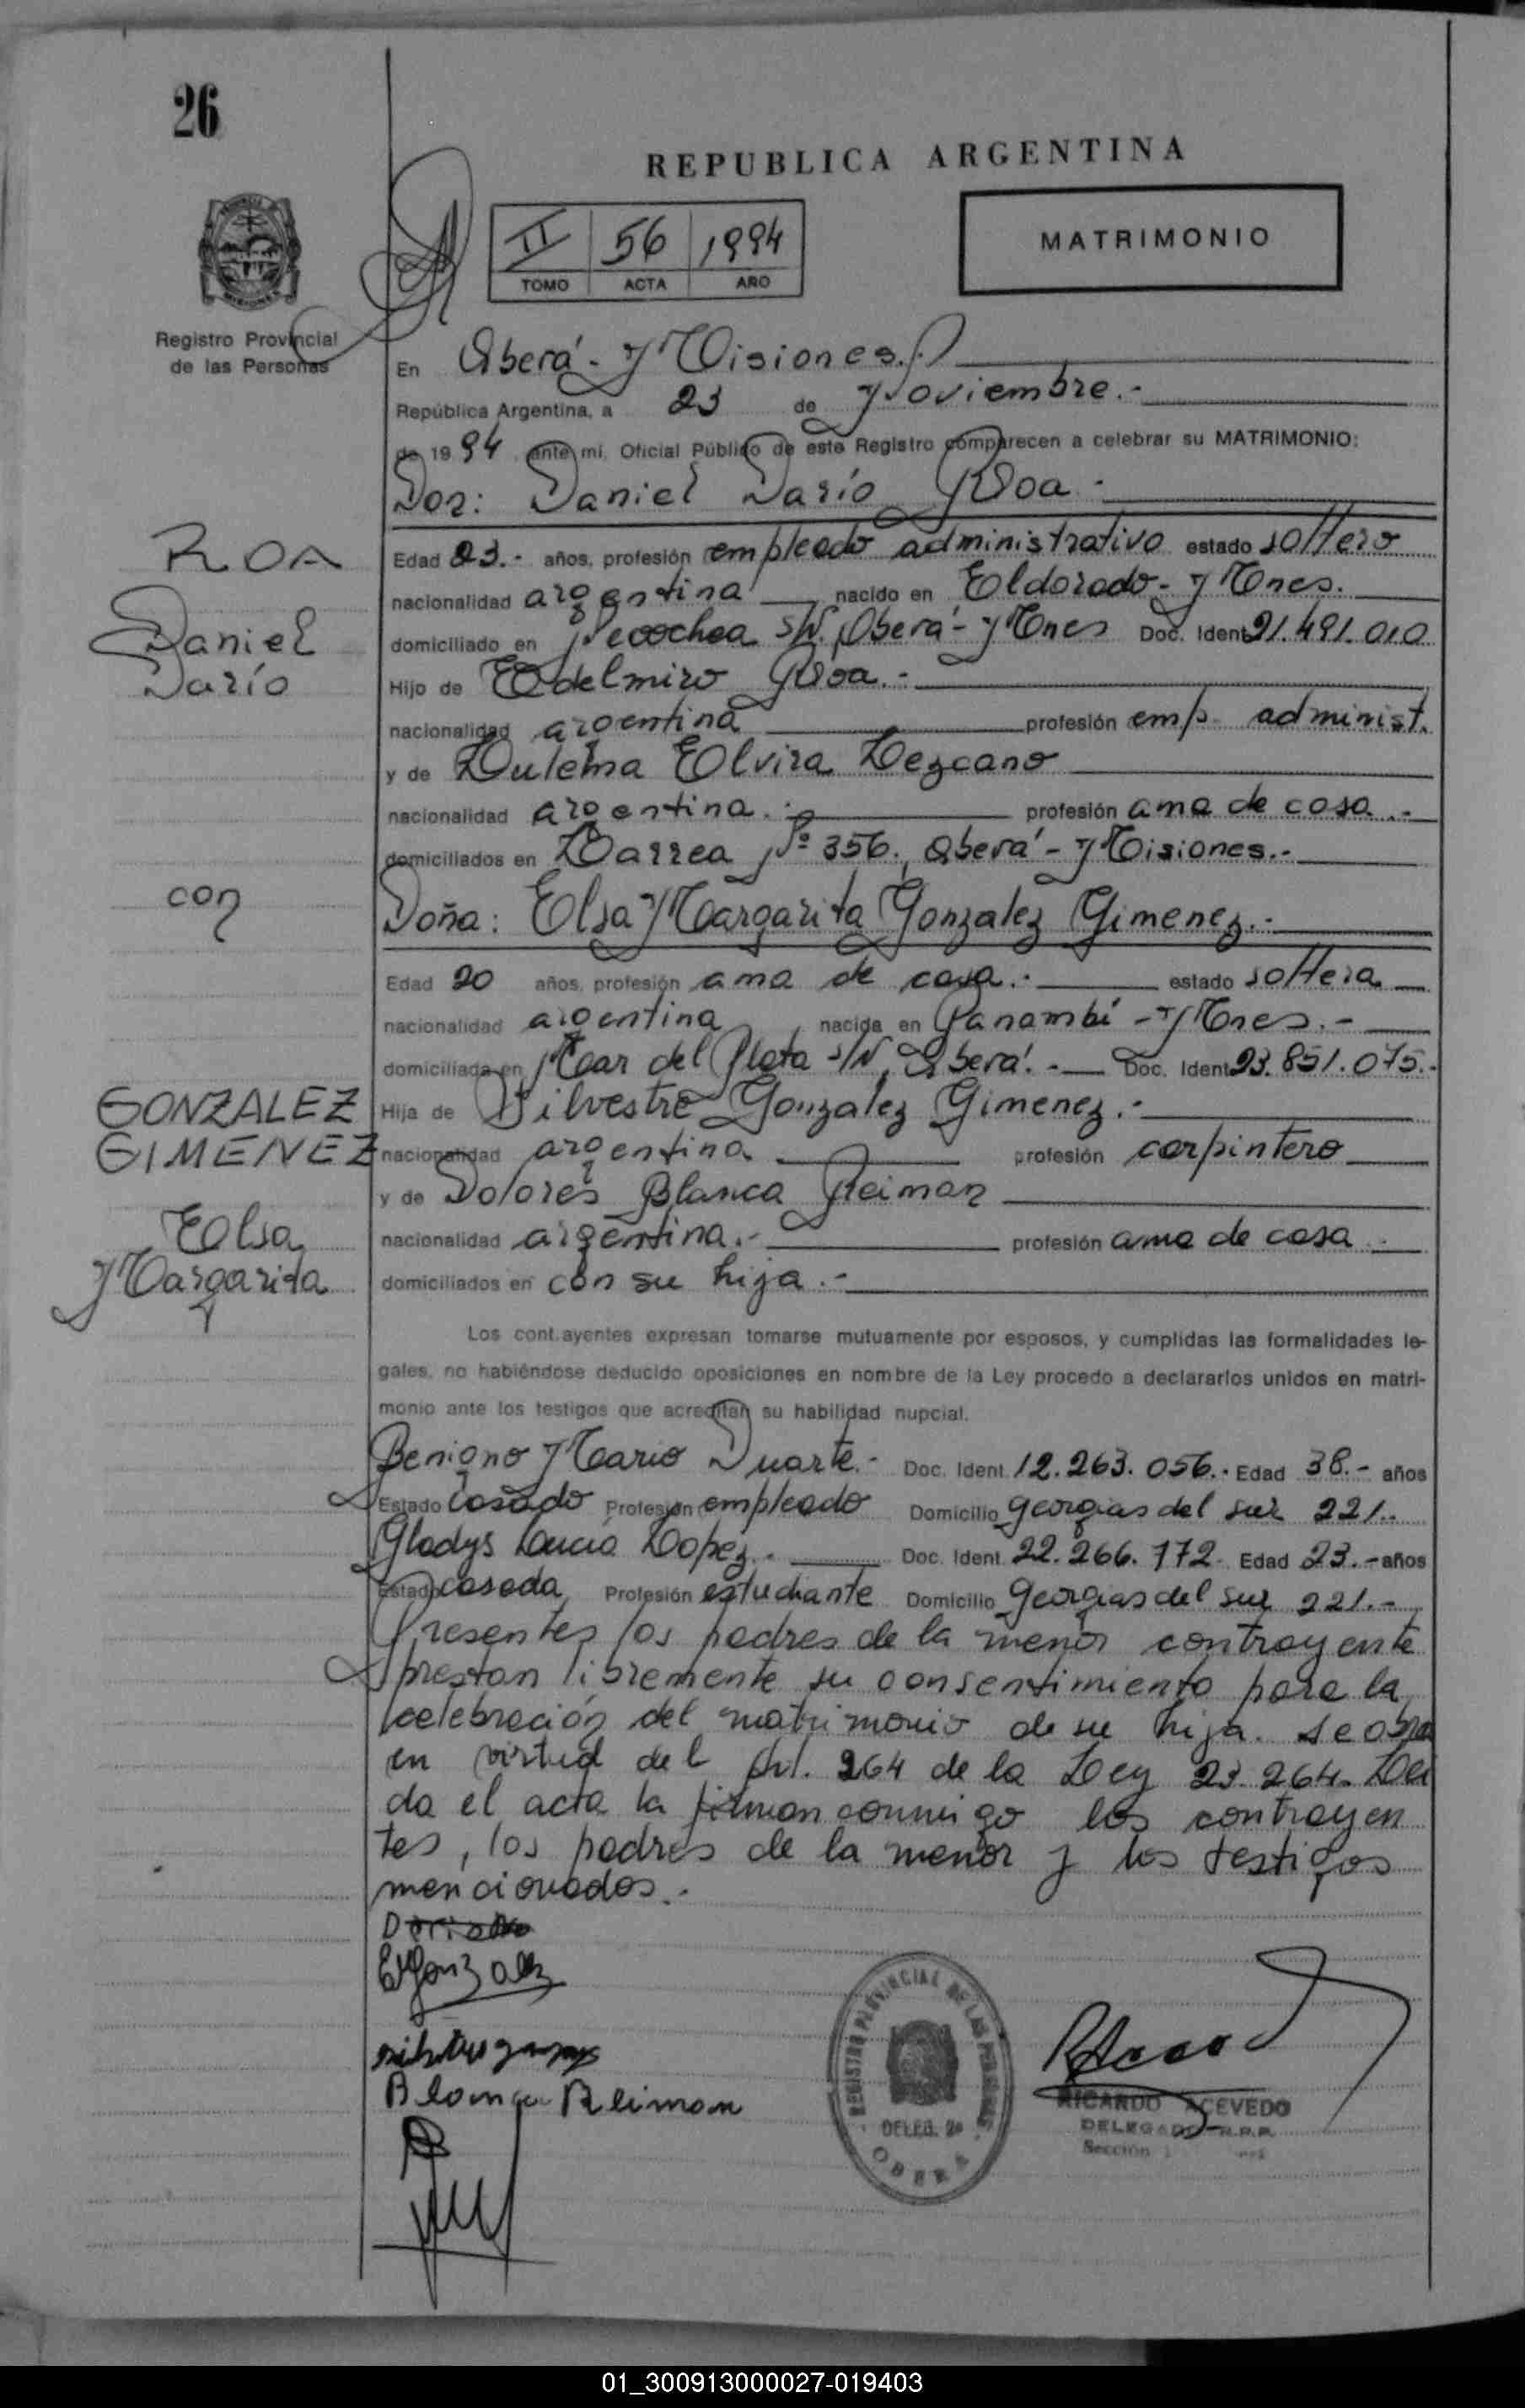 26
REPUBLICA ARGENTINA
II 56 1994
TOMO ACTA AÑO
MATRIMONIO
Registro Provincial
de las Personas
En Oberá - Misiones.-
República Argentina, a 23 de Noviembre.-
de 1994 ante mi, Oficial Público de este Registro comparecen a celebrar su MATRIMONIO:
Don: Daniel Darío Roa.-
ROA
Daniel
Darío
Edad 23.- años, profesión empleado administrativo estado soltero
nacionalidad argentina nacido en Eldorado - Mnes.
domiciliado en Necochea S/N, Oberá - Mnes Doc. Ident 21.491.010
Hijo de Edelmiro Roa.-
nacionalidad argentina profesión emp. administ.
y de Zulema Elvira Lezcano
nacionalidad argentina.- profesión ama de casa.-
domiciliados en Larrea Nº 356., Oberá - Misiones.-
con
Doña: Elsa Margarita Gonzalez Gimenez.-
Edad 20 años, profesión ama de casa.- estado soltera
nacionalidad argentina, nacida en Panambí - Mnes.-
domiciliada en Mar del Plata S/N, Oberá.- Doc. Ident 23.851.075.-
GONZALEZ
GIMENEZ
Elsa
Margarita
Hija de Silvestre Gonzalez Gimenez.-
nacionalidad argentina profesión carpintero
y de Dolores Blanca Reiman
nacionalidad argentina.- profesión ama de casa
domiciliados en con su hija.-
Los contrayentes expresan tomarse mutuamente por esposos, y cumplidas las formalidades le-
gales, no habiéndose deducido oposiciones en nombre de la Ley procedo a declararlos unidos en matri-
monio ante los testigos que acreditan su habilidad nupcial.
Benigno Mario Duarte.- Doc. Ident. 12.263.056.- Edad 38.- años
Estado casado Profesión empleado Domicilio Georgias del sur 221.-
Gladys Lucia Lopez.- Doc. Ident. 22.266.172. Edad 23.- años
Estado casada Profesión estudiante Domicilio Georgias del sur 221.-
Presentes los padres de la menor contrayente
prestan libremente su consentimiento para la
celebración del matrimonio de su hija. Se obra
en virtud del Art. 264 de la Ley 23.264. Lei
da el acta la firman conmigo los contrayen
tes, los padres de la menor y los testigos
mencionados.-
EMGonzalez
Blanca Reiman
REGISTRO PROVINCIAL DE LAS PERSONAS
DELEG. 2ª
OBERA
RICARDO ACEVEDO
DELEGADO R.P.P.
Sección
01_300913000027-019403